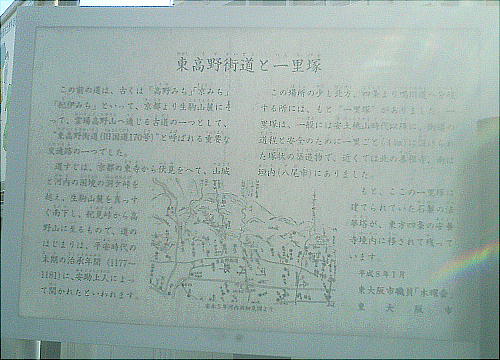 東高野街道と一里塚
この前の道は、古くは「高野みち」「京みち」
「紀伊みち」といって、京都より生駒山麓に
って、霊場高野山へ通じる古道の一つとして、
"東高野街道(旧国道170号)"と呼ばれる重要な
交通路の一つでした。
道すじは、京都の東寺から伏見をへて、山城
と河内の国境の洞ケ峠を
越え、生駒山麓を真っす
ぐ南下し、紀見峠から高
野山に至るもので、道の
はじまりは、平安時代の
末期の治承年間(1177~
1181)に、安助上人によっ
て開かれたといわれます。
この場所の少し北方、四条より鳴川道へを
する所には、もと"一里塚"がありました。一
里塚は、一般には安土桃山時代以降に、街道の
道程と安全のために一里ごと(4㎞)に設けられ
た塚状の築造物で、近くでは北の善根寺、南は
垣内(八尾市)にありました。
もと、ここの一里塚に
建てられていた石製の法
華塔が、東方四条の安養
寺境内に移されて残って
います。
平成8年1月
東大阪市職員「木曜会」
東大阪市